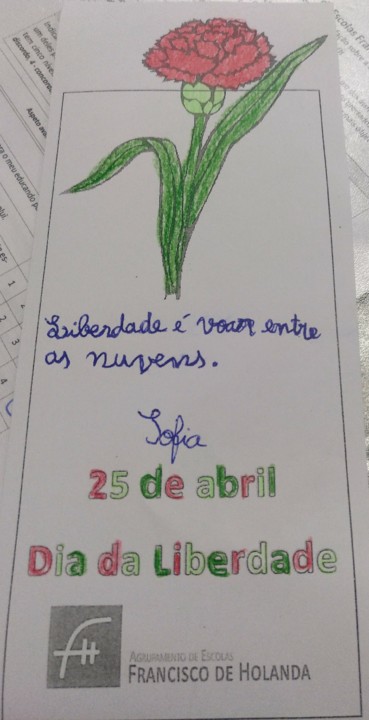 Liberdade é voar entre
as nuvens.
Sofia
25 de abril
Dia da Liberdade
AGRUPAMENTO DE ESCOLAS
FRANCISCO DE HOLANDA